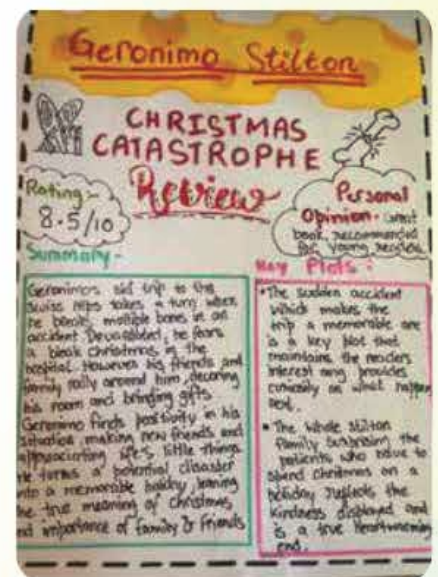 Geronimo Stilton
CHRISTMAS
CATASTROPHE
Review
Rating:-
8.5/10
Personal
Opinion- Great
book, recommended
for young readers
Summary-
Geronimo's ski trip to the
Swiss Alps takes a turn when
he breaks multiple bones in an
accident. Devastated, he fears
a bleak christmas in the
hospital. However his friends and
family rally around him, decoring
his room and bringing gifts.
Geronimo finds positivity in his
situation, making new friends and
appreciating life's little things.
He turns a potential disaster
into a memorable holiday, learning
the true meaning of Christmas,
and importance of family & friends
Key Plots:
•The sudden accident
which makes the
trip a memorable one
is a key plot that
maintains the readers
interest and provides
curiosity on what happen
next.
•The whole stilton
family surprising the
patients who have to
spend christmas on a
holiday reflects the
kindness displayed and
is a true heartwarming
end.